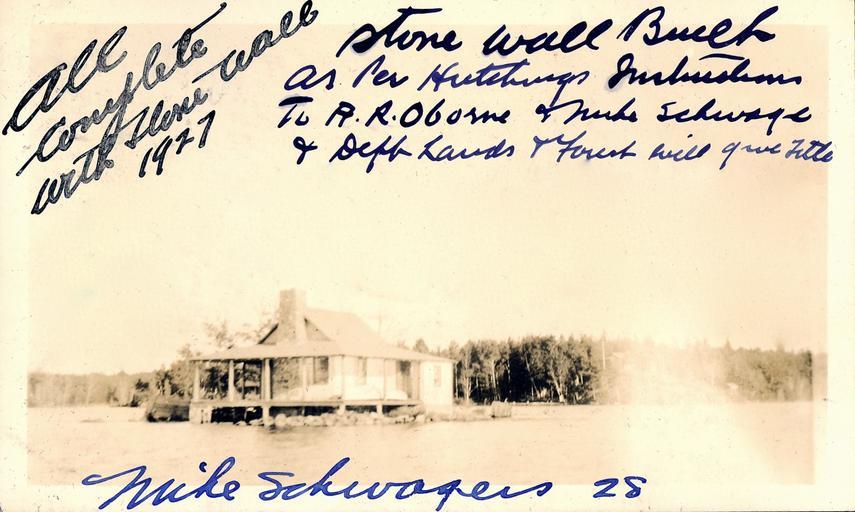 All
Complete
with Stone wall
1927
Stone wall Built
as Per Hutchings Instructions
To R. R. Oborne & Mike Schwage
& Dept Lands & Forest will give Title
Mike Schwagers 28